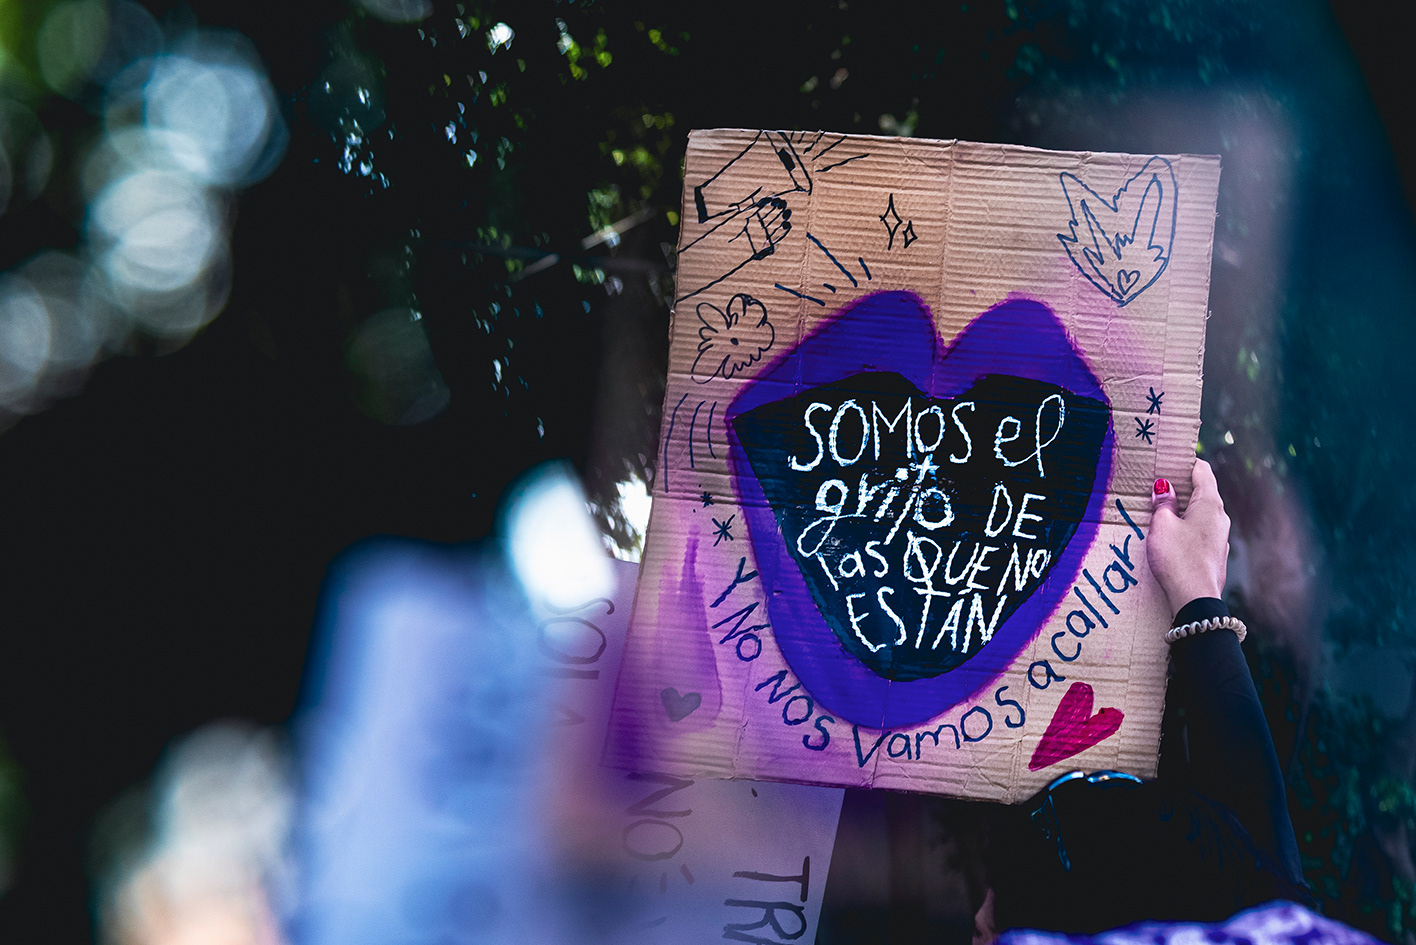 SOMOS el
grito DE
las QUE NO
ESTÁN
Y NO NOS vamos a callar!
SOLA
NO
TR